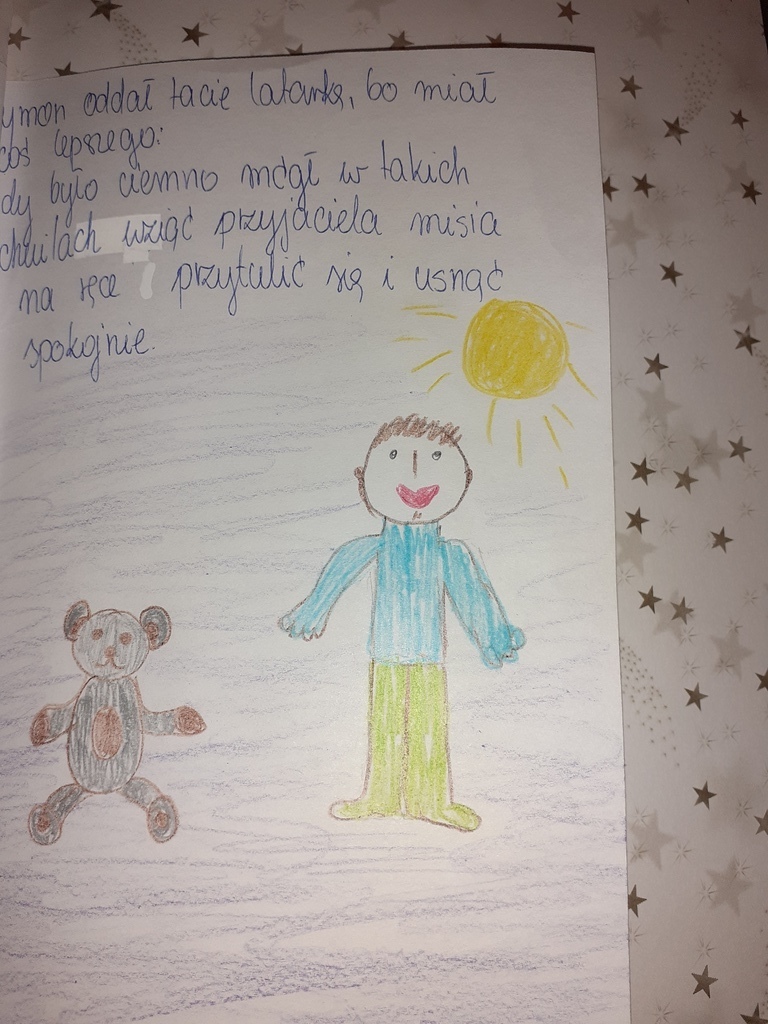 ymon oddał tacie latarkę, bo miał
coś lepszego:
dy było ciemno mógł w takich
chwilach wziąć przyjaciela misia
na ręce i przytulić się i usnąć
spokojnie.